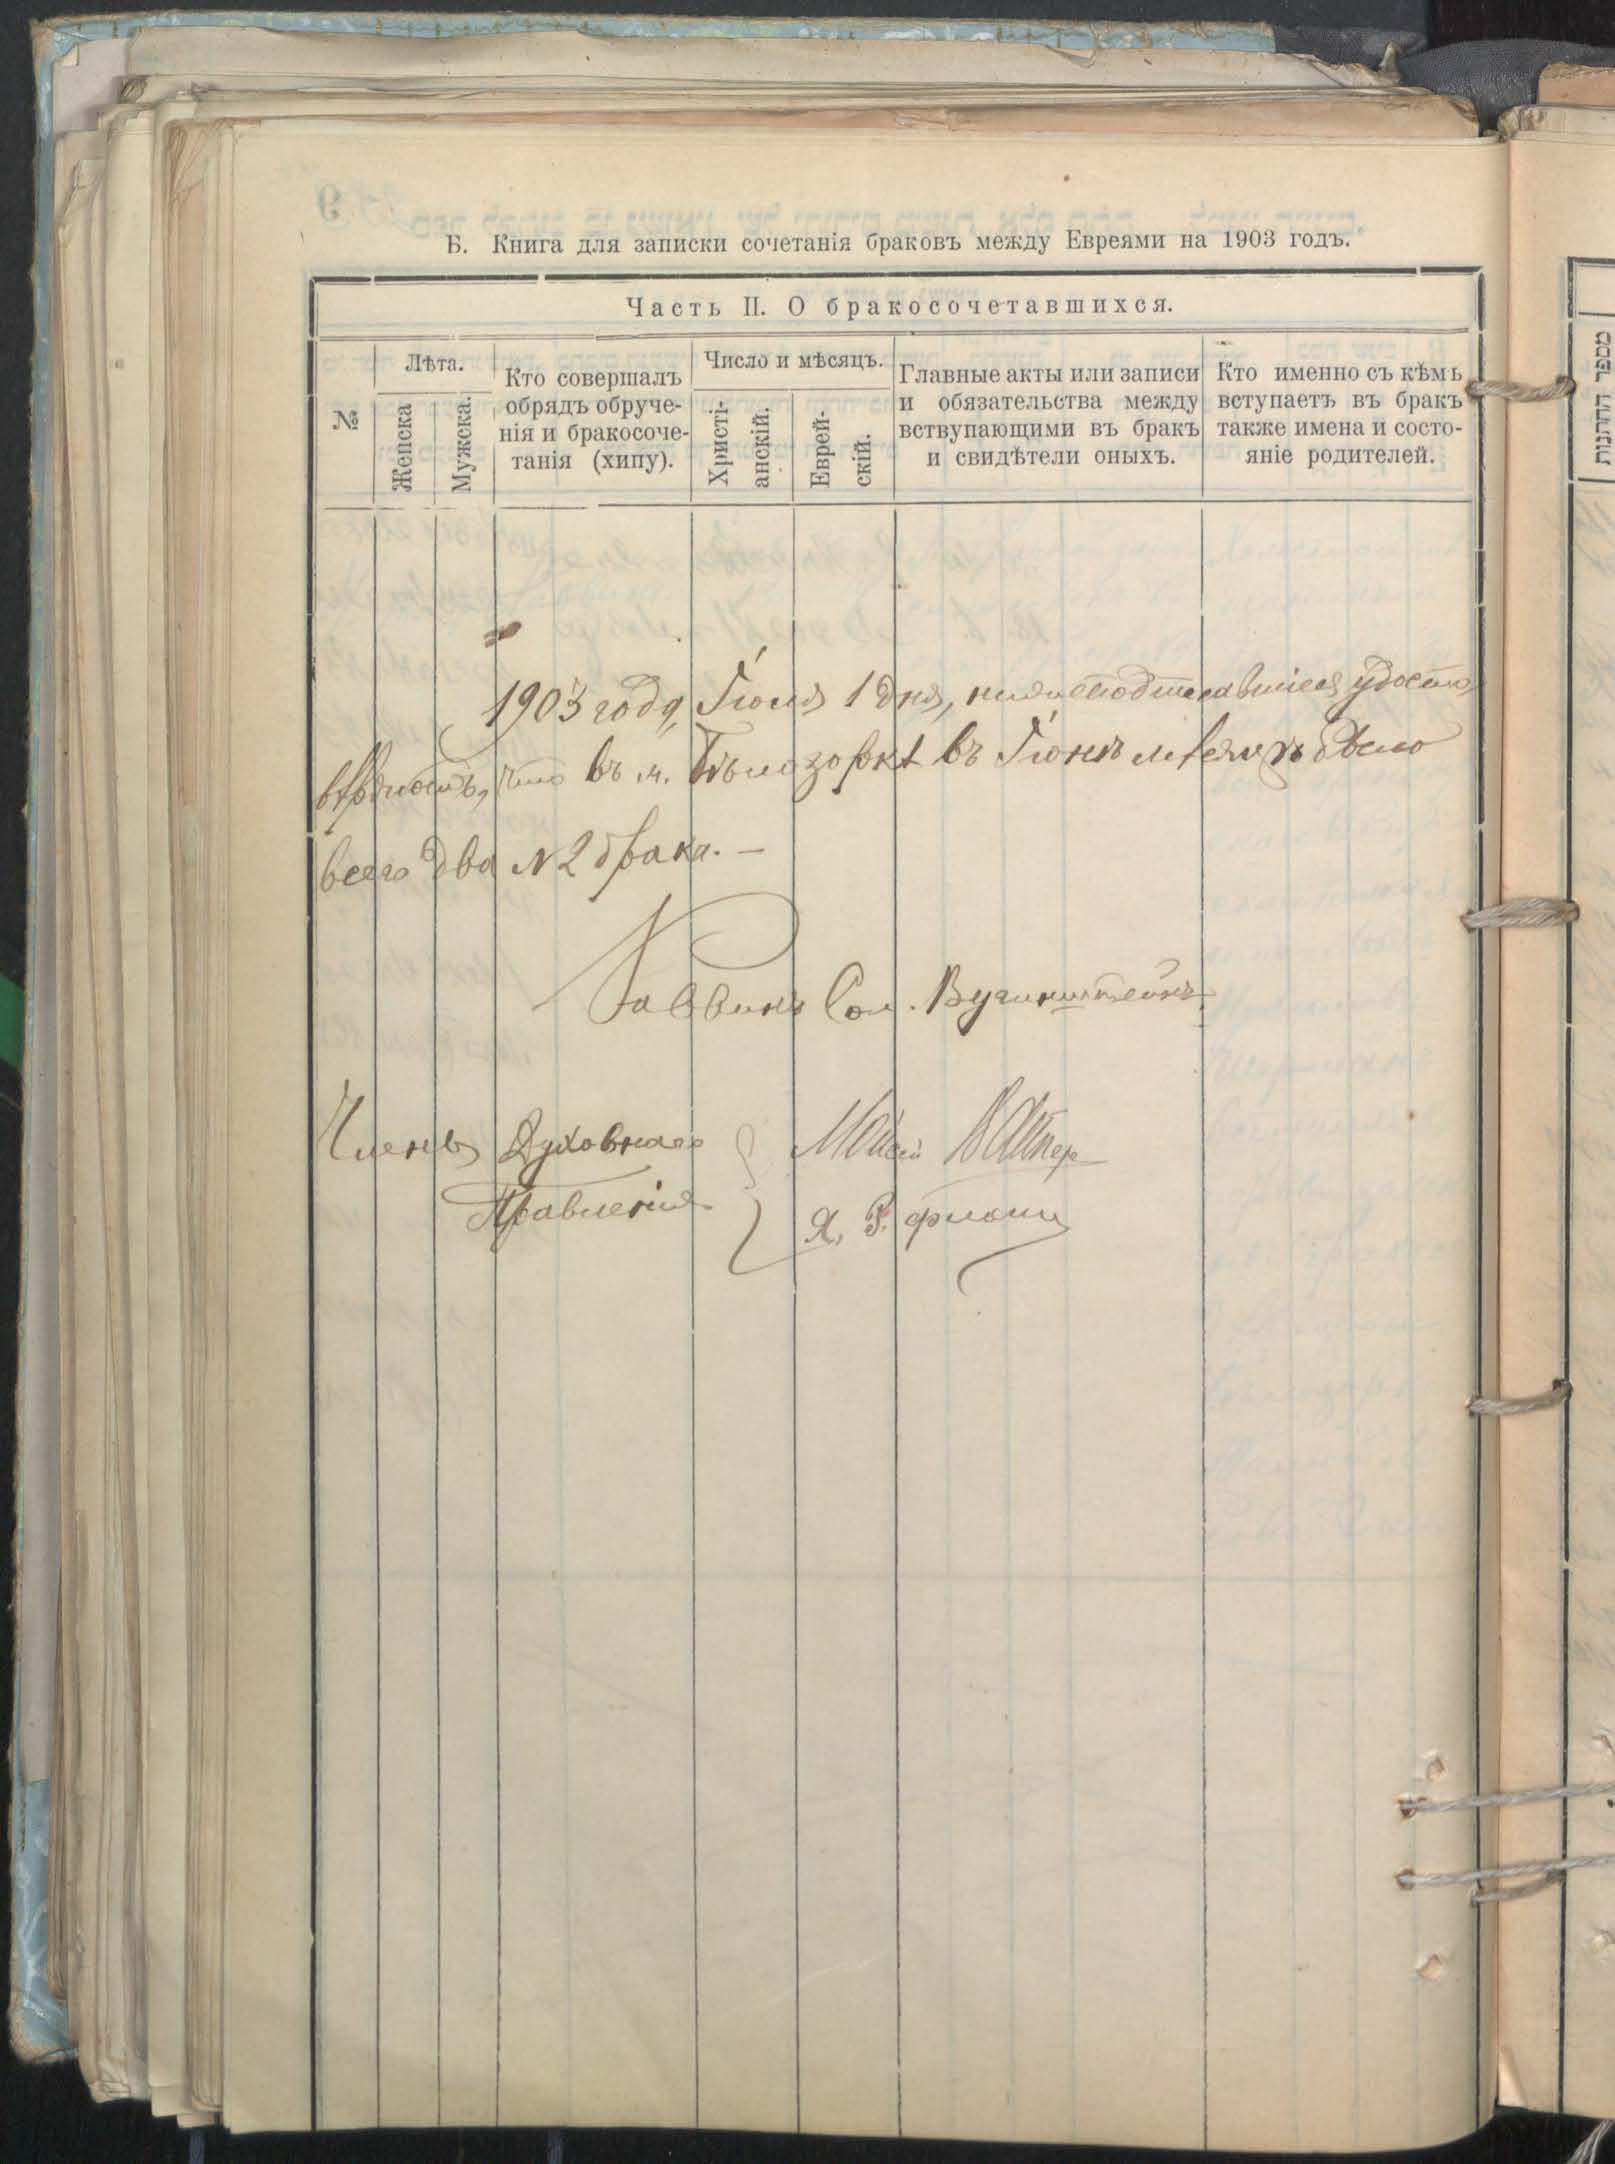 Б. Книга для записки сочетанія браковъ между Евреями на 1903 годъ.
Часть II. О бракосочетавшихся.
№
Лѣта.
Женска
Мужска.
Кто совершалъ
обрядъ обруче-
нія и бракосоче-
танія (хипу).
Число и мѣсяцъ.
Христі-
анскій.
Еврей-
скій.
Главные акты или записи
и обязательства между
вствупающими въ бракъ
и свидѣтели оныхъ.
Кто именно съ кѣмъ
вступаетъ въ бракъ
также имена и состо-
яніе родителей.
1903 года, Іюля 1 дня, нижеподписавшіеся удосто-
вѣряютъ, что въ м. Бѣлозоркѣ въ Іюнѣ мѣсяцѣ было
всего два № 2 брака. —
Раввинъ Сол.
Члены Духовнаго
Правленія
Мойсей
Я. З.
מספר הדרנות